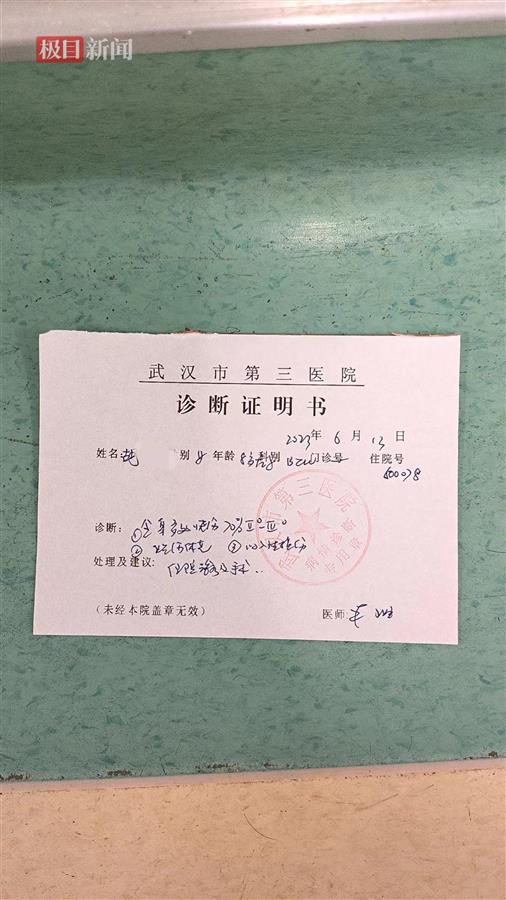 极目新闻
武汉市第三医院
诊断证明书
2023年 6 月 13 日
姓名 别 年龄 科别 门诊号 住院号
600078
诊断: ①全身多处烧伤70% Ⅱ°-Ⅲ°
② ③吸入性损伤
处理及建议: 住院治疗及手术..
(未经本院盖章无效) 医师:
武汉市第三医院
病情诊断
专用章